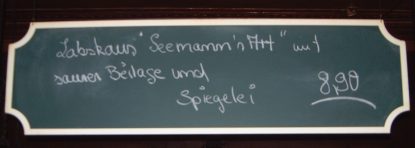 Labskaus "Seemann's Art" mit
saurer Beilage und
Spiegelei 8,90